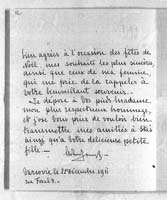 bien agréer à l'occasion des fêtes de
Noël, mes souhaits les plus sincères,
ainsi que ceux de ma femme,
qui me prie de la rappeler à
votre bienveillant souvenir.
Je dépose à Vos pieds Madame
mon plus respectueux hommage,
et j'ose Vous prier de vouloir bien
transmettre mes amitiés à Stas
ainsi qu'à Votre délicieuse petite
fille.
Varsovie, le 22 décembre 1911